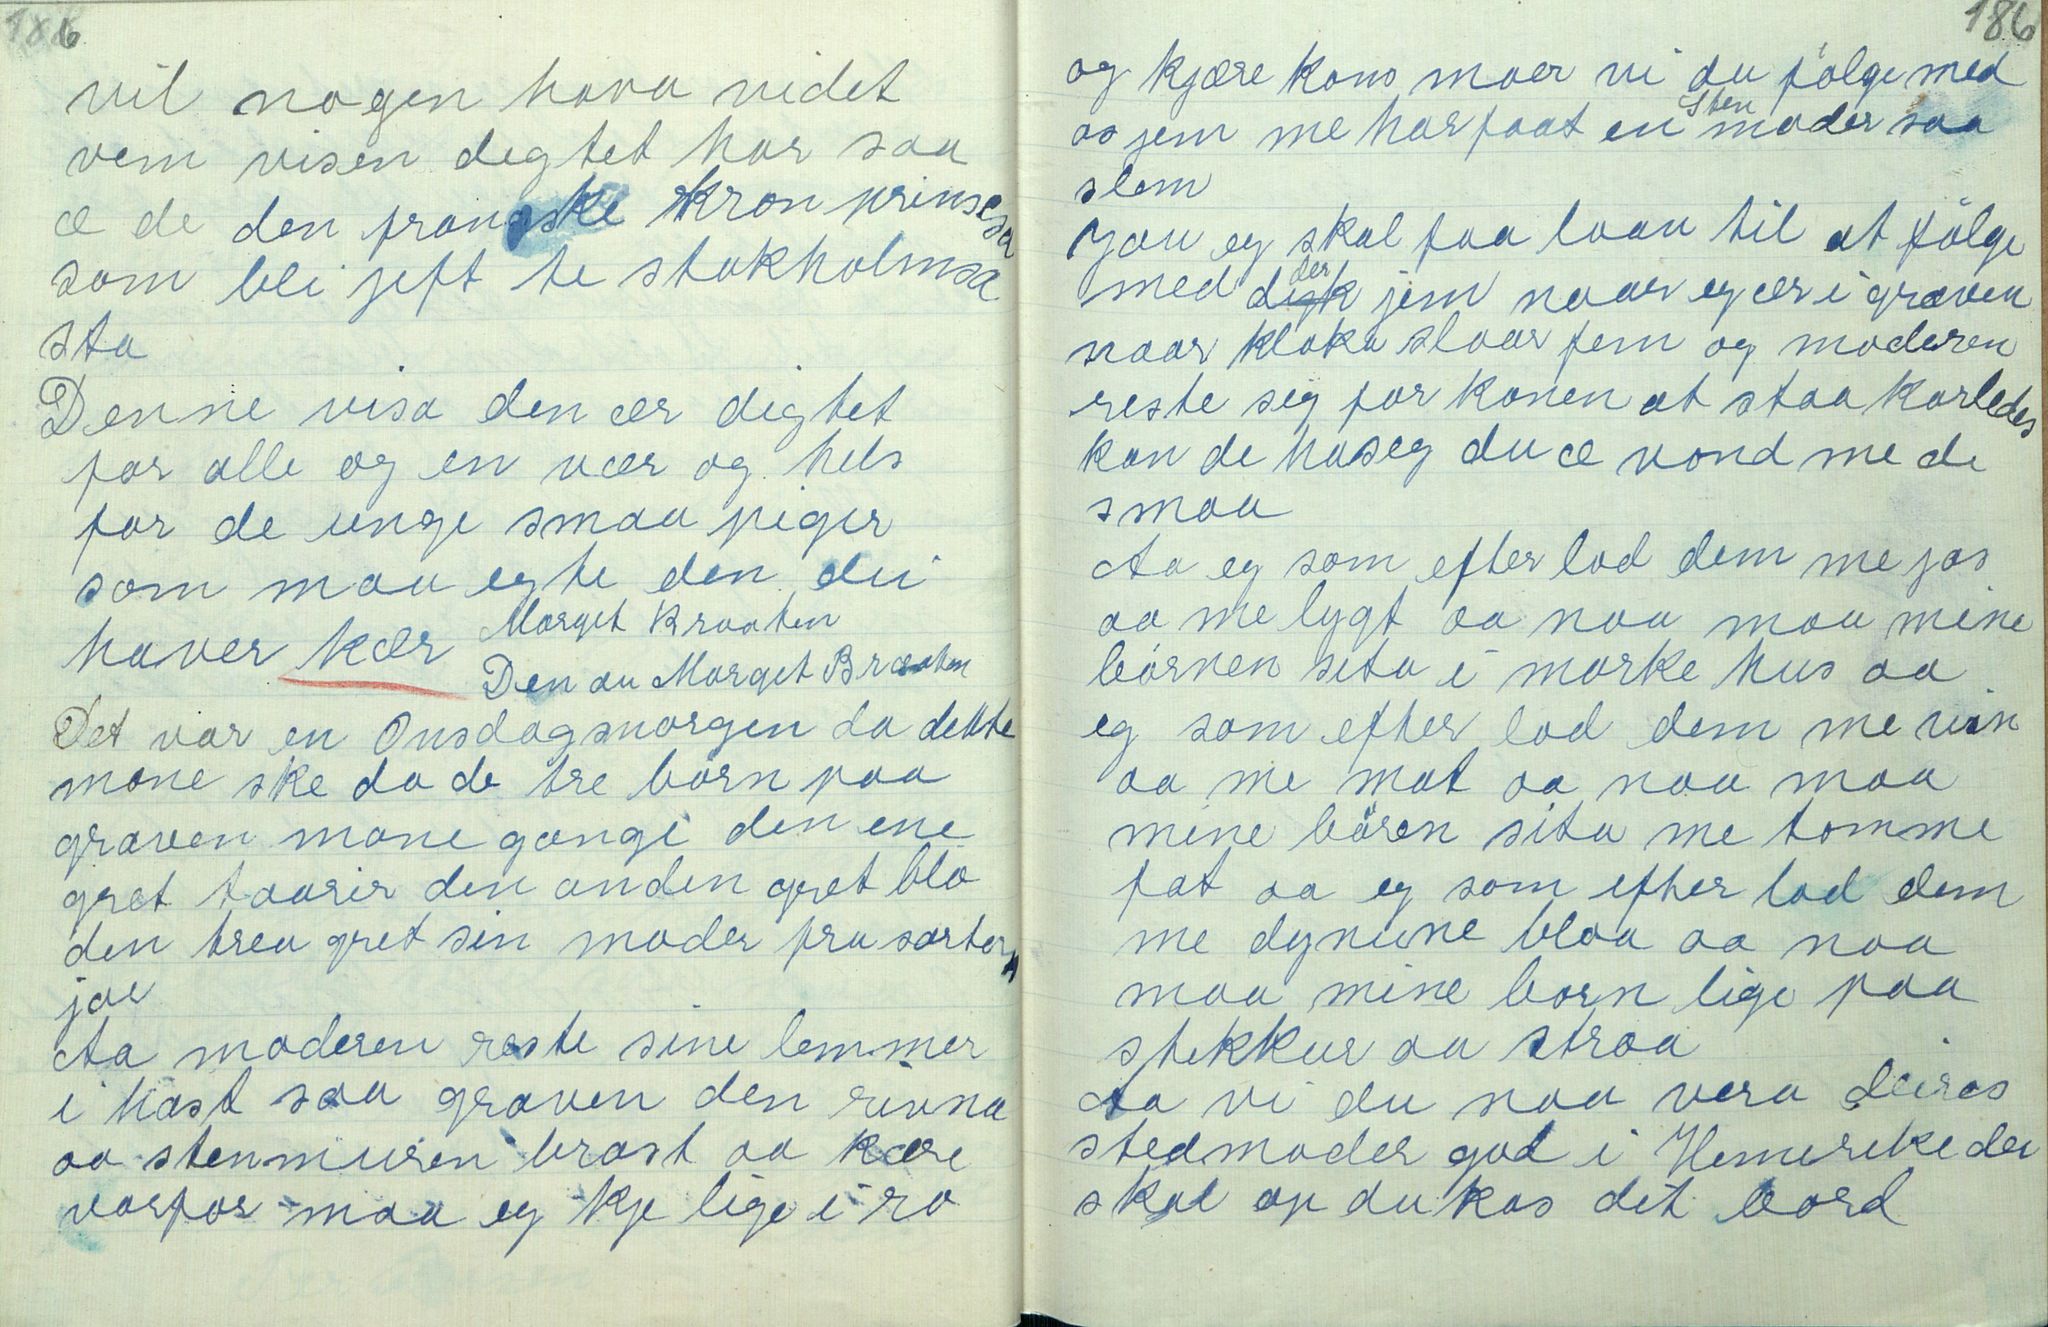 186
vil nogen hava videt
vem visen degtet har saa
æ de den franqske kronprinsesa
som bli jeft te stokholmsa
sta
Denne visa den ær digtet
for alle og en vær og hels
for de unge smaa piger
som maa egte den dei
haver kær Marget Braaten
Den au Marget Bræaten
Det var en Onsdagsmorgen da dette
mone ske da de tre børn paa
graven mone gange den ene
gret taarer den anden gret blo
den trea gret sin moder fra sorten
jor
Aa moderen reste sine lemmer
i hast saa graven den rivna
aa stenmuren brast aa kære
vorfor maa eg kje lige i ro
186
og kjære kons moer vi du følge med
os jem me har faat en Sten moder saa
slem
Jau eg skal faa laav til at følge
med digk der jem naar eg ær i graven
naar kloka slaar fem og moderen
reste seg for konen at staa korledes
kan de haseg du æ vond me de
smaa
Aa eg som efter lod dem me jos
aa me lygt aa naa maa mine
børnen sita i morke hus aa
eg som efter lod dem me vin
aa me mat aa naa maa
mine bören sita me tomme
fat aa eg som efter lod dem
me dynune blaa aa naa
maa mine born lige paa
stekkur aa straa
Aa vi du naa vera deiros
stedmoder god i Hemerike der
skal op du kos det bord